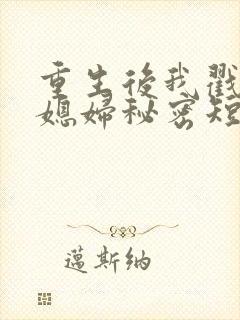 重生後我戳
媳婦秘密短
邁斯納